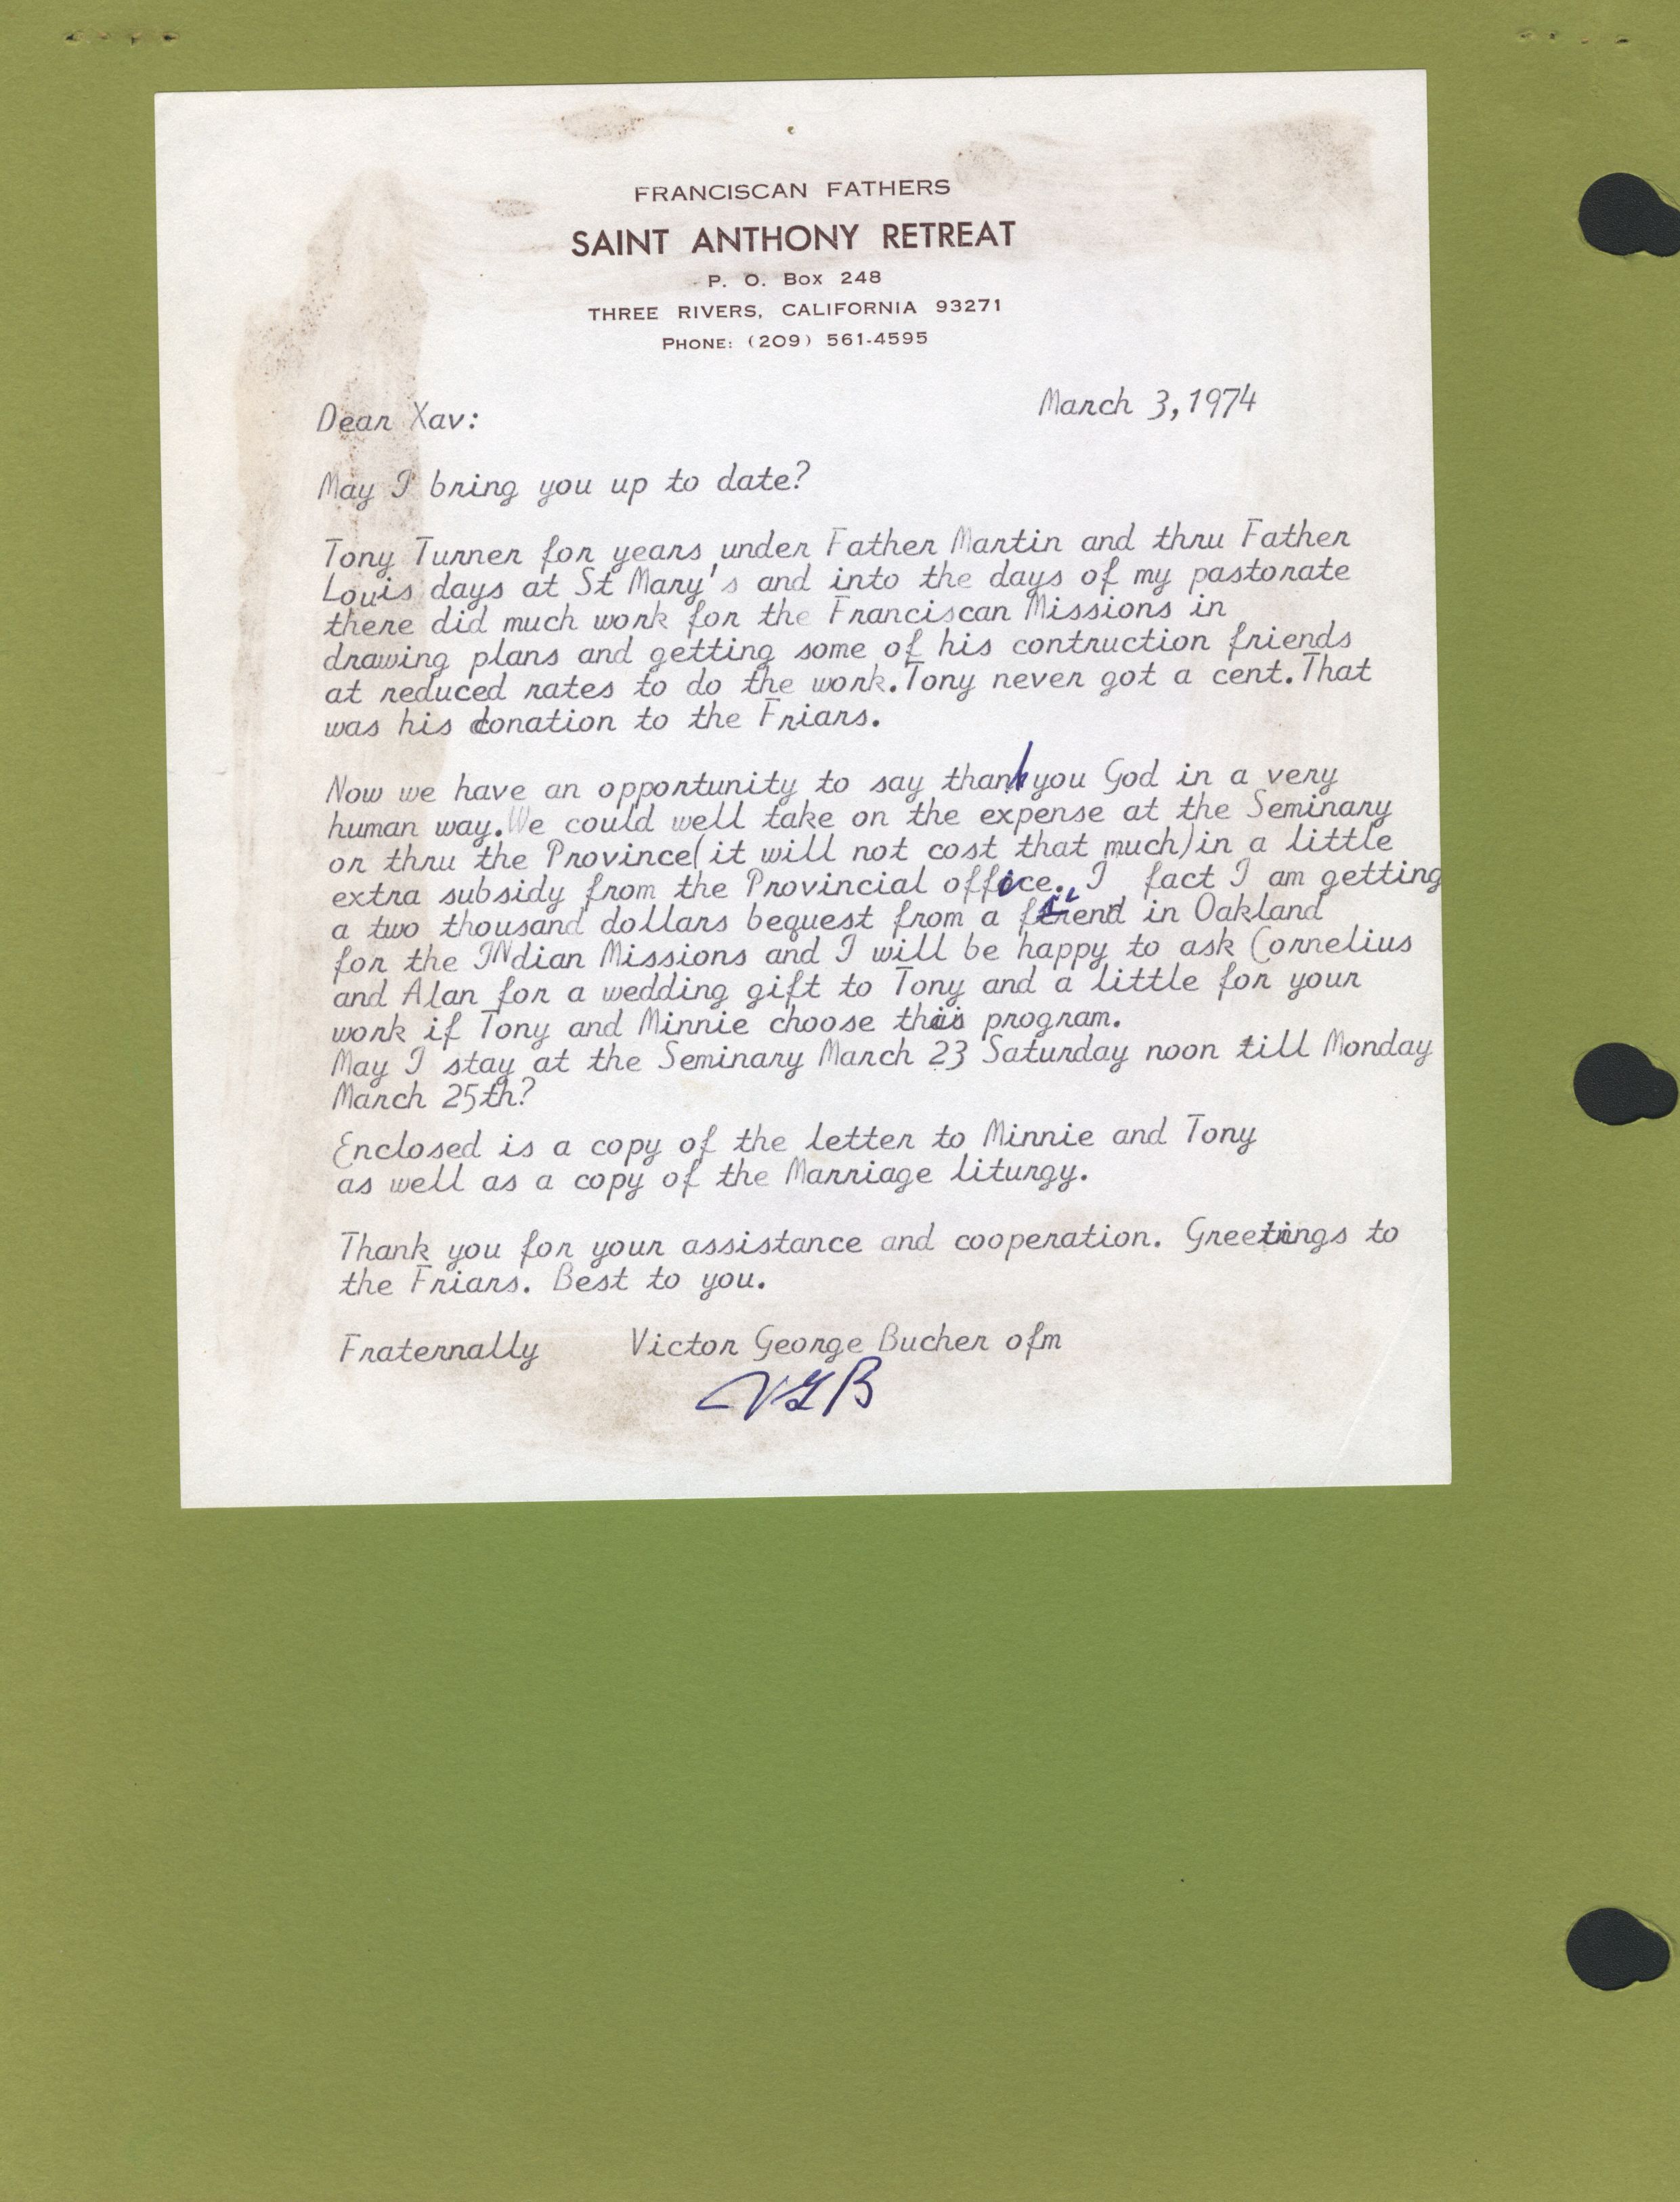 FRANCISCAN FATHERS
SAINT ANTHONY RETREAT
P. O. Box 248
THREE RIVERS, CALIFORNIA 93271
PHONE: (209) 561-4595
March 3, 1974
Dear Xav:
May I bring you up to date?
Tony Turner for years under Father Martin and thru Father
Louis days at St Mary's and into the days of my pastorate
there did much work for the Franciscan Missions in
drawing plans and getting some of his contruction friends
at reduced rates to do the work.Tony never got a cent.That
was his donation to the Friars.
Now we have an opportunity to say thank you God in a very
human way.We could well take on the expense at the Seminary
or thru the Province(it will not cost that much)in a little
extra subsidy from the Provincial office. I fact I am getting
a two thousand dollars bequest from a friend in Oakland
for the INdian Missions and I will be happy to ask Cornelius
and Alan for a wedding gift to Tony and a little for your
work if Tony and Minnie choose this program.
May I stay at the Seminary March 23 Saturday noon till Monday
March 25th?
Enclosed is a copy of the letter to Minnie and Tony
as well as a copy of the Marriage liturgy.
Thank you for your assistance and cooperation. Greetings to
the Friars. Best to you.
Fraternally Victor George Bucher ofm
VGB